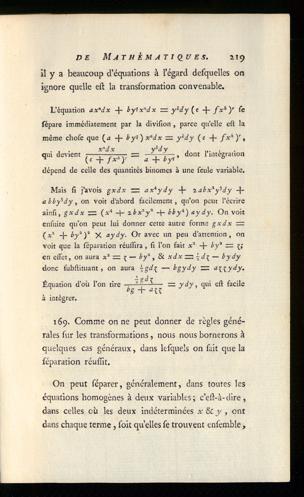 DE MATHÉMATIQUES. 219
il y a beaucoup d'équations à l'égard desquelles on
ignore quelle est la transformation convenable.
L'équation axⁿdx + byᑫxⁿdx = yᵖdy (e + fxᵏ)ʳ se
sépare immédiatement par la division, parce qu'elle est la
même chose que (a + byᑫ) xⁿdx = yᵖdy (e + fxᵏ)ʳ,
qui devient xⁿdx / (e + fxᵏ)ʳ = yᵖdy / a + byᑫ, dont l'intégration
dépend de celle des quantités binomes à une seule variable.
Mais si j'avois gxdx = ax⁴ydy + 2abx²y³dy +
abby⁵dy, on voit d'abord facilement, qu'on peut l'écrire
ainsi, gxdx = (x⁴ + 2bx²y² + bby⁴) aydy. On voit
ensuite qu'on peut lui donner cette autre forme gxdx =
(x² + by²)² × aydy. Or avec un peu d'attention, on
voit que la séparation réussira, si l'on fait x² + by² = z;
en effet, on aura x² = z − by², & xdx = ½dz − bydy
donc substituant, on aura ½gdz − bgydy = azzydy.
Équation d'où l'on tire ½gdz / bg + azz = ydy, qui est facile
à intégrer.
169. Comme on ne peut donner de règles géné-
rales sur les transformations, nous nous bornerons à
quelques cas généraux, dans lesquels on sait que la
séparation réussit.
On peut séparer, généralement, dans toutes les
équations homogènes à deux variables; c'est-à-dire,
dans celles où les deux indéterminées x & y, ont
dans chaque terme, soit qu'elles se trouvent ensemble,